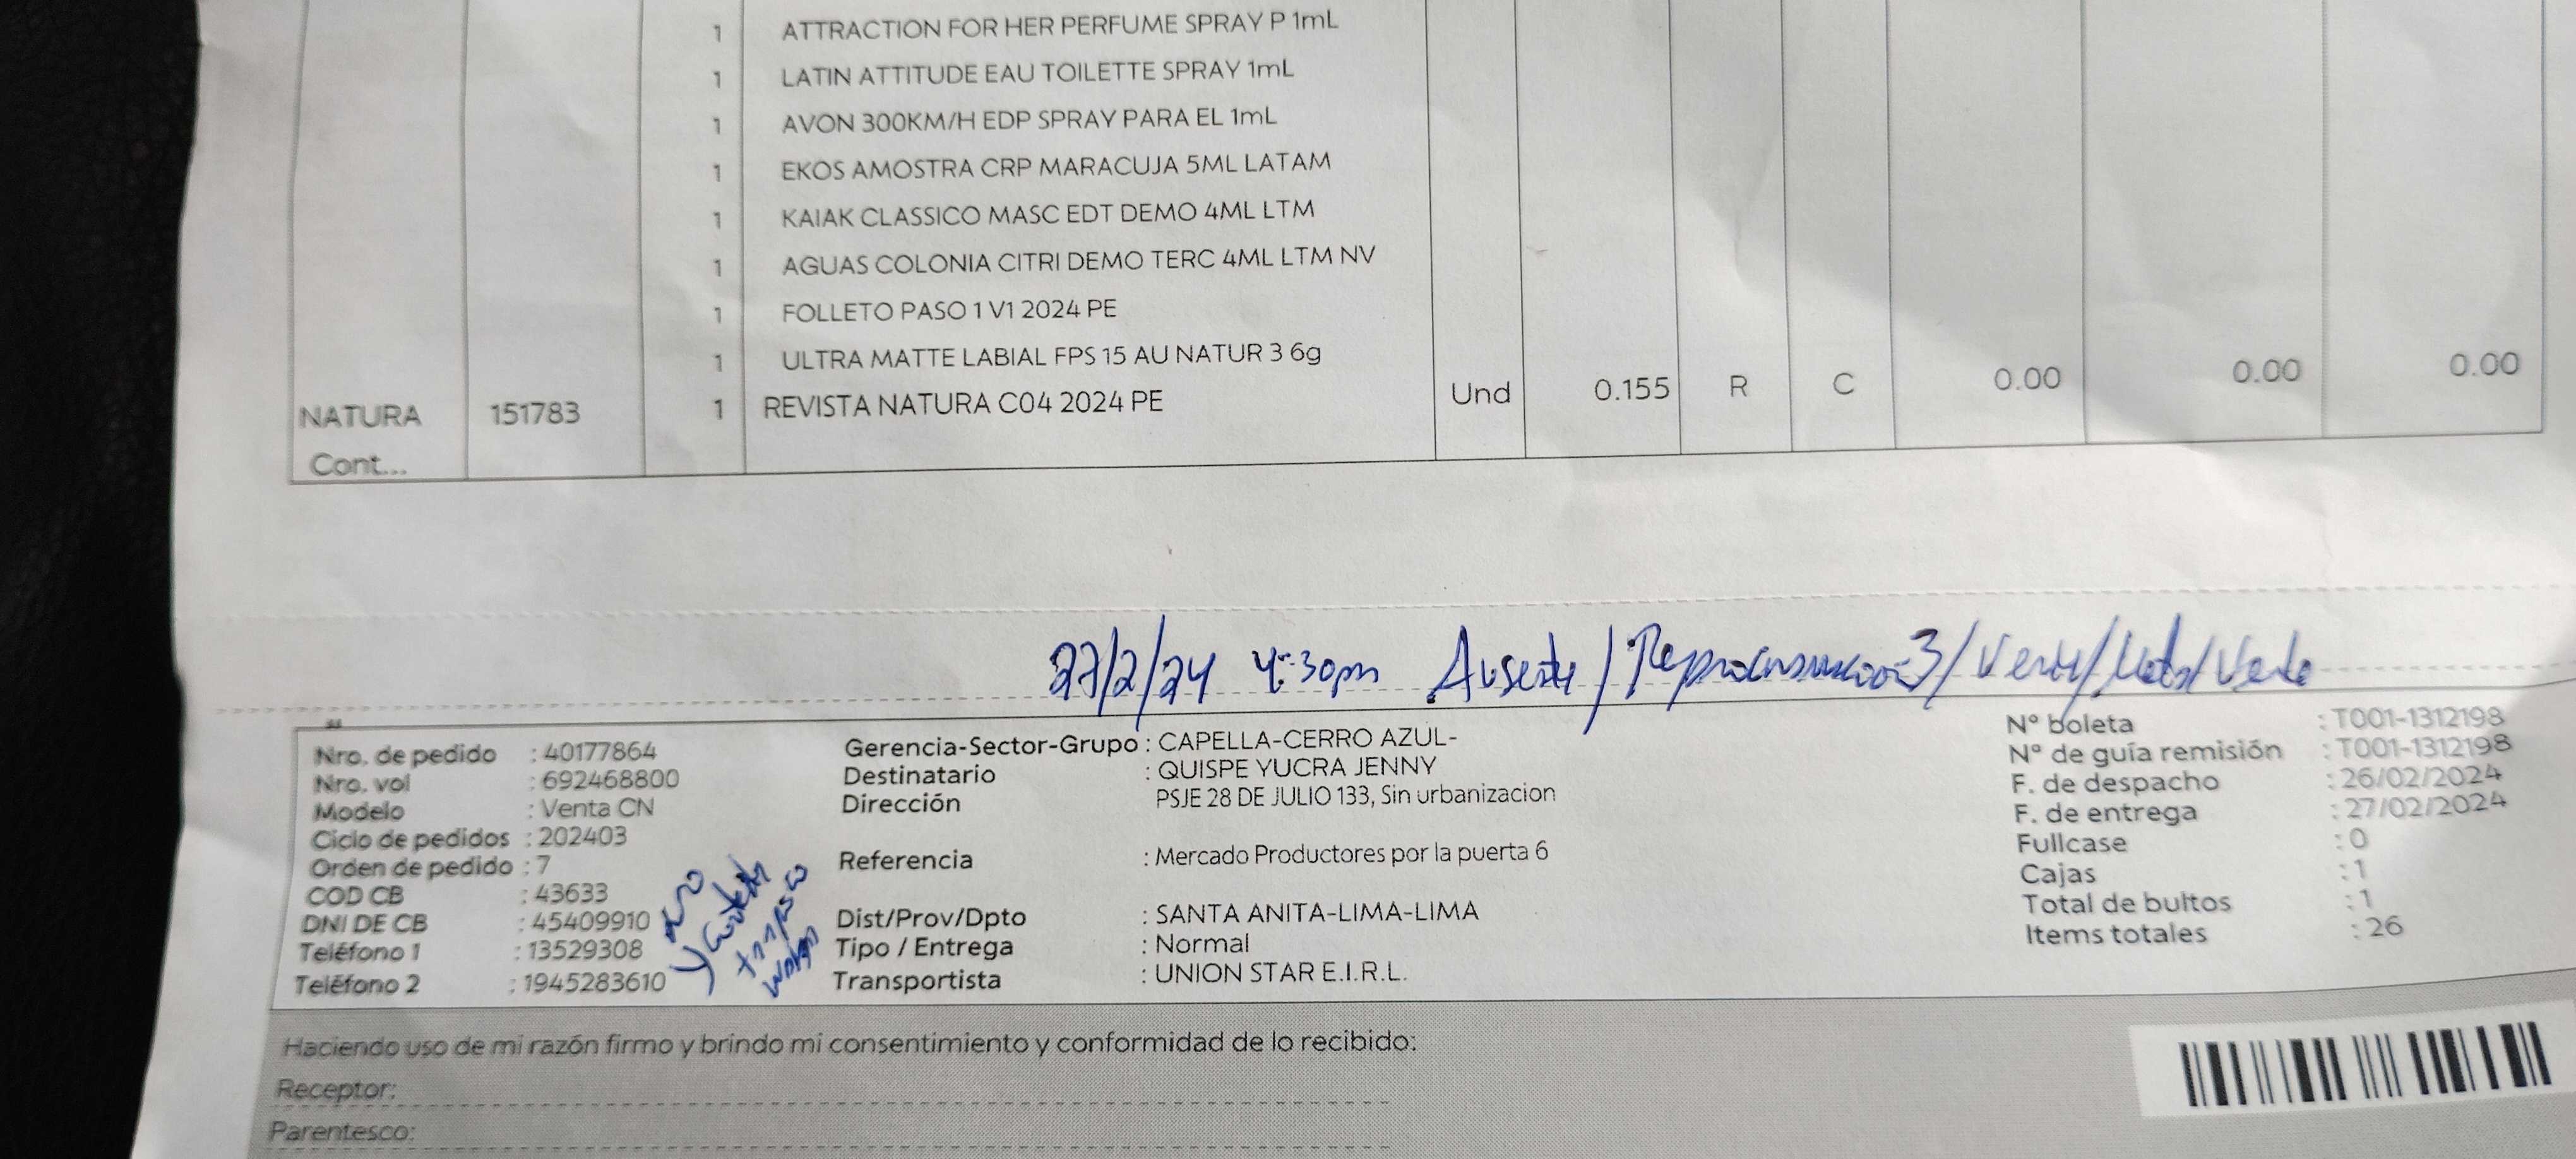 1 ATTRACTION FOR HER PERFUME SPRAY P 1mL
1 LATIN ATTITUDE EAU TOILETTE SPRAY 1mL
1 AVON 300KM/H EDP SPRAY PARA EL 1mL
1 EKOS AMOSTRA CRP MARACUJA 5ML LATAM
1 KAIAK CLASSICO MASC EDT DEMO 4ML LTM
1 AGUAS COLONIA CITRI DEMO TERC 4ML LTM NV
1 FOLLETO PASO 1 V1 2024 PE
1 ULTRA MATTE LABIAL FPS 15 AU NATUR 3 6g
NATURA 151783 1 REVISTA NATURA C04 2024 PE Und 0.155 R C 0.00 0.00 0.00
Cont...
27/2/24 4:30pm Ausente/
Nro. de pedido : 40177864
Nro. vol : 692468800
Modelo : Venta CN
Ciclo de pedidos : 202403
Orden de pedido : 7
COD CB : 43633
DNI DE CB : 45409910
Teléfono 1 : 13529308
Teléfono 2 : 1945283610
Gerencia-Sector-Grupo : CAPELLA-CERRO AZUL-
Destinatario : QUISPE YUCRA JENNY
Dirección PSJE 28 DE JULIO 133, Sin urbanizacion
Referencia : Mercado Productores por la puerta 6
Dist/Prov/Dpto : SANTA ANITA-LIMA-LIMA
Tipo / Entrega : Normal
Transportista : UNION STAR E.I.R.L.
N° boleta : T001-1312198
N° de guía remisión : T001-1312198
F. de despacho : 26/02/2024
F. de entrega : 27/02/2024
Fullcase : 0
Cajas : 1
Total de bultos : 1
Items totales : 26
Haciendo uso de mi razón firmo y brindo mi consentimiento y conformidad de lo recibido:
Receptor:
Parentesco: